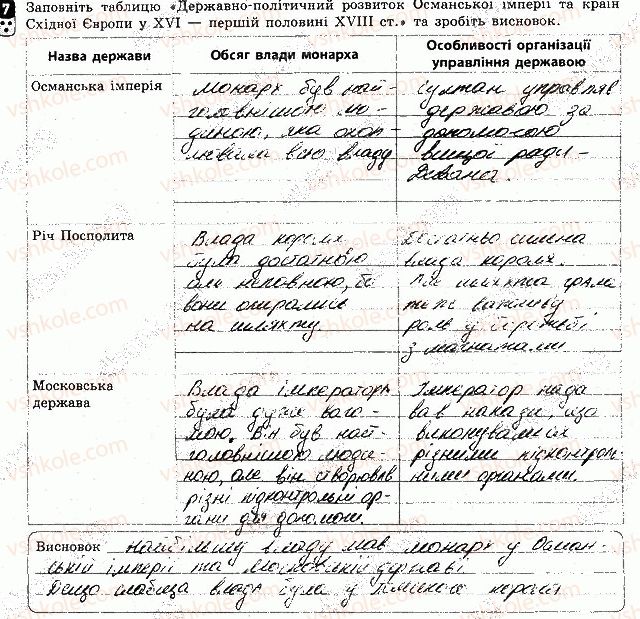 7 Заповніть таблицю «Державно-політичний розвиток Османської імперії та країн
Східної Європи у XVI — першій половині XVIII ст.» та зробіть висновок.
Назва держави
Обсяг влади монарха
Особливості організації
управління державою
Османська імперія
монарх був най-
головнішою лю-
диною, яка охоп-
лювала всю владу
Султан управляв
державою за
допомогою
вищої ради -
Дивана.
Річ Посполита
Влада короля
була достатньою
але неповною, бо
вони опирались
на шляхту
Достатньо сильна
влада короля.
Але шляхта грала
теж важливу
роль у боротьбі
з магнатами
Московська
держава
Влада імператора
була дуже ваго-
мою. Він був най-
головнішою люди-
ною, але він створював
різні підконтрольні ор-
гани для допомоги.
Імператор нада
вав накази, що
виконувались
різними підконтроль-
ними органами.
Висновок найбільшу владу мав монарх у Осман-
ській імперії та Московській державі
Дещо слабша влада була у польського короля
vshkole.com